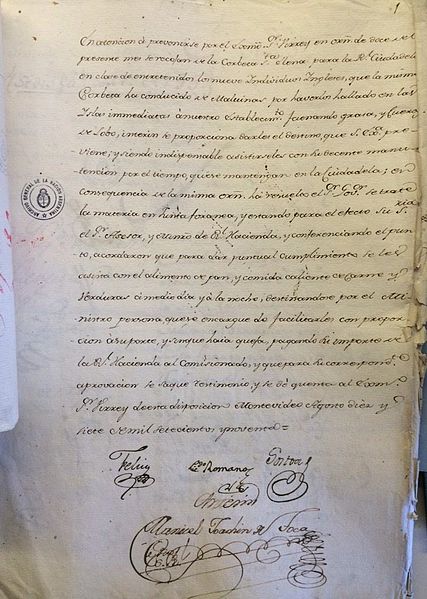 1
En atencion à prevenirse por el Exmo. Sr. Virrey en orñ de doce del
presente mes se recojan de la Corbeta Sta. Elena para la Rl. Ciudadela
en clase de entretenidos los nueve Individuos Ingleses, que la misma
Corbeta ha conducido de Maluinas por haverlos hallado en las
Islas immediatas ànuestro Establecimto. faenando grasa, y Cueros
de Lobo, interin se proporciona darles el destino que S. E. pre-
viene; y siendo indispensable asistirseles con la decente manu-
tencion por el tiempo, que se mantengan en la Ciudadela; en
consequencia de la misma orñ. ha resuelto el Sr. Govr. se trate
la materia en Junta foranea, y estando para el efecto Su Sria.
el Sr. Asesor, y Minro. de Rl. Hacienda, y conferenciando el pun-
to, acordaron que para dar puntual Cumplimiento se les
asista con el alimento de pan, y comida caliente de carne y
verduras à medio dia y à la noche, destinandose por el Mi-
nistro persona, que se encargue de facilitarles con propor-
cion à su porte, y sin que haia quefa, pagando el importe de
la Rl. Hacienda al Comisionado, y que para la correspondte.
aprovacion se saque testimonio, y se dè quenta al Exmo.
Sr. Virrey de esta disposicion Montevideo Agosto diez y
siete de mil setecientos y noventa=
Feliu
Romano
Manuel Joachin de Toca
ARCHIVO GENERAL DE LA NACION ARGENTINA